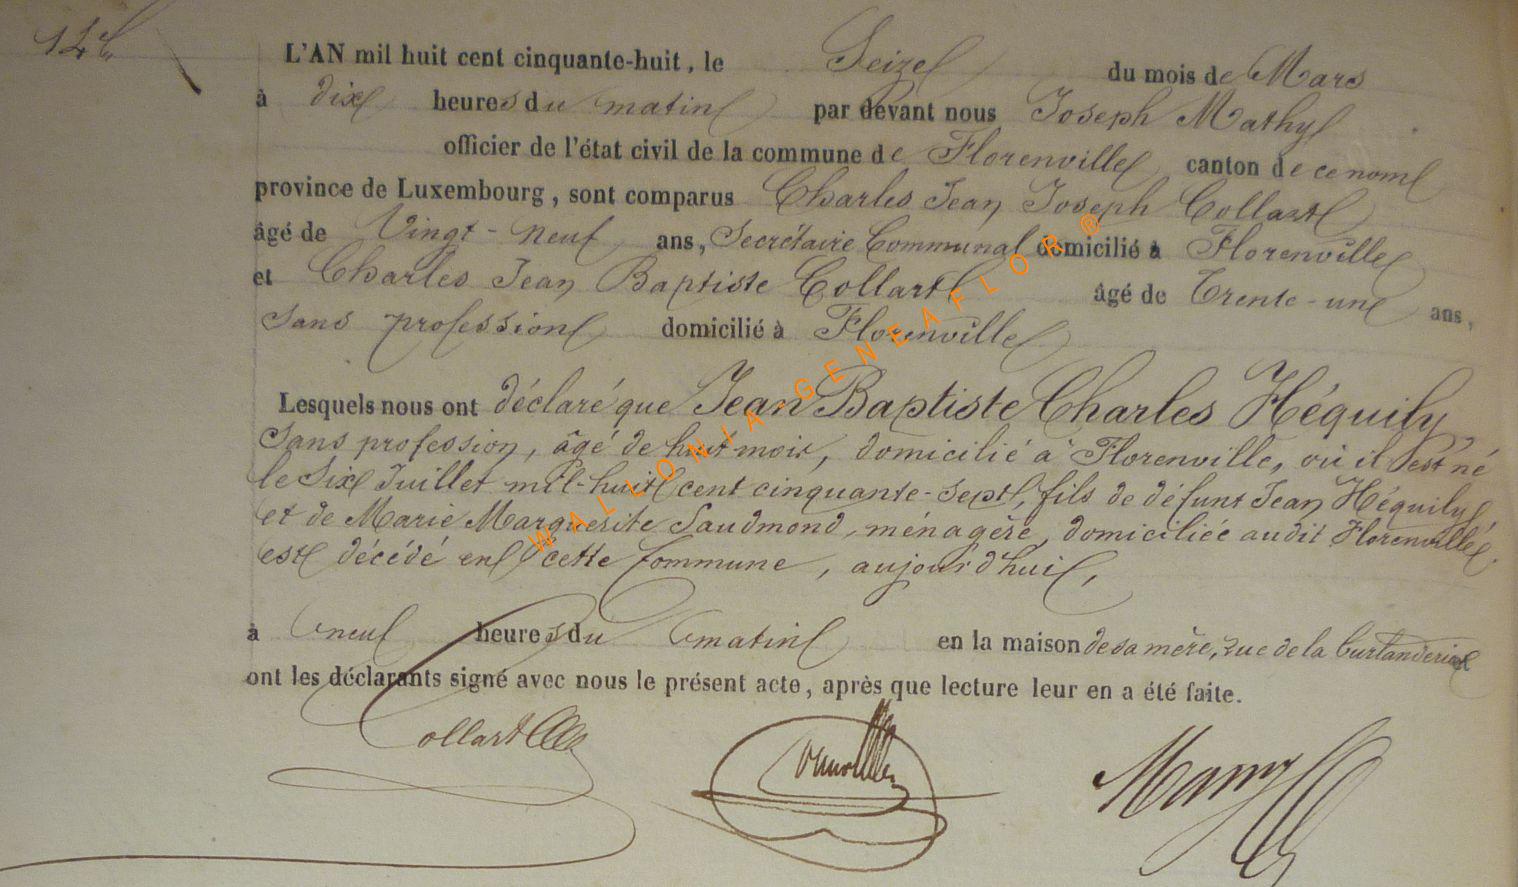 L'AN mil huit cent cinquante-huit, le Seize du mois de Mars
à dix heures du matin par devant nous Joseph Mathy
officier de l'état civil de la commune de Florenville canton de ce nom
province de Luxembourg, sont comparus Charles Jean Joseph Collart
âgé de Vingt-neuf ans, Secrétaire Communal domicilié à Florenville
et Charles Jean Baptiste Collart âgé de Trente-un ans,
sans profession domicilié à Florenville
Lesquels nous ont déclaré que Jean Baptiste Charles Héquily,
sans profession, âgé de huit mois, domicilié à Florenville, où il est né
le Six Juillet mil-huit cent cinquante-sept, fils de défunt Jean Héquily
et de Marie Marguerite Saudmond, ménagère, domiciliée audit Florenville
est décédé en cette Commune, aujourd'hui,
à neuf heures du matin en la maison de sa mère, rue de la
ont les déclarants signé avec nous le présent acte, après que lecture leur en a été faite.
Collart
WALLONIA-GENEAFLOR®